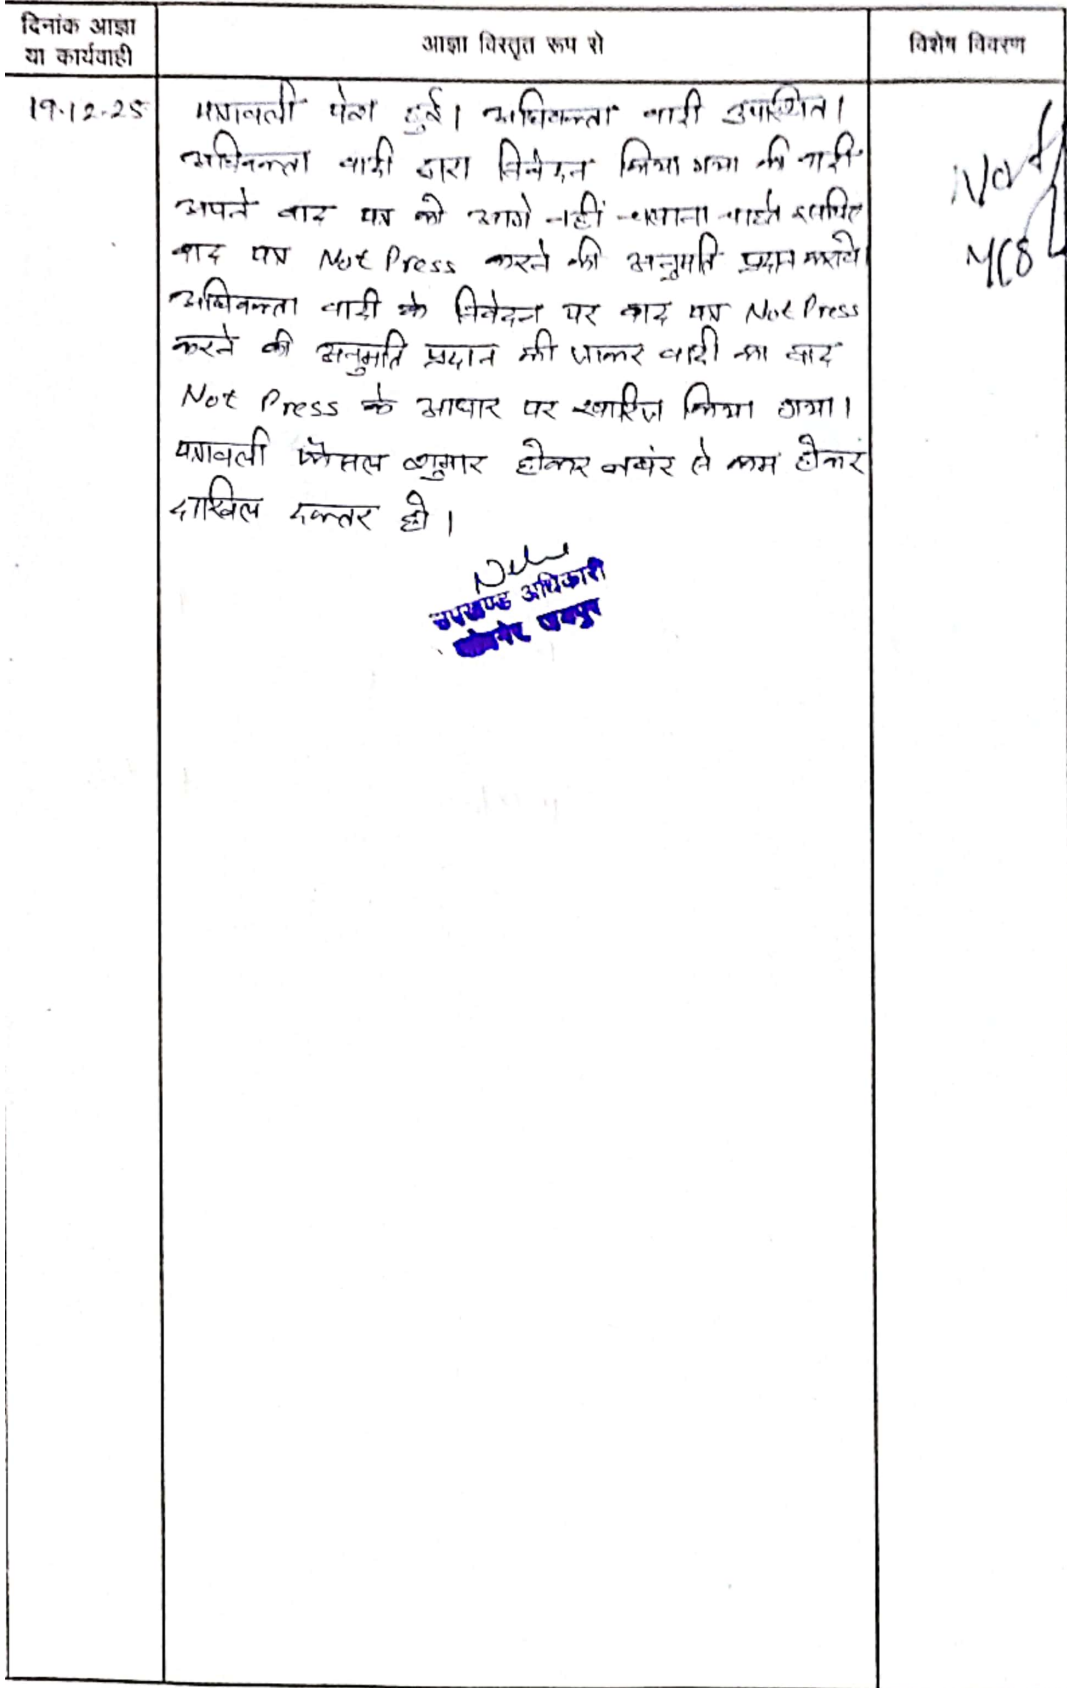 दिनांक आज्ञा
या कार्यवाही
आज्ञा विस्तृत रूप से
विशेष विवरण
19-12-25
पत्रावली पेश हुई। अधिवक्ता वादी उपस्थित।
अधिवक्ता वादी द्वारा निवेदन किया गया की वादी
अपने वाद पत्र को आगे नहीं चलाना चाहते इसलिए
वाद पत्र Not Press करने की अनुमति प्रदान करावे।
अधिवक्ता वादी के निवेदन पर वाद पत्र Not Press
करने की अनुमति प्रदान की जाकर वादी का वाद
Not Press के आधार पर खारिज किया गया।
पत्रावली फैसल शुमार होकर नम्बर से कम होकर
दाखिल दफ्तर हो।
उपखण्ड अधिकारी
जयपुर